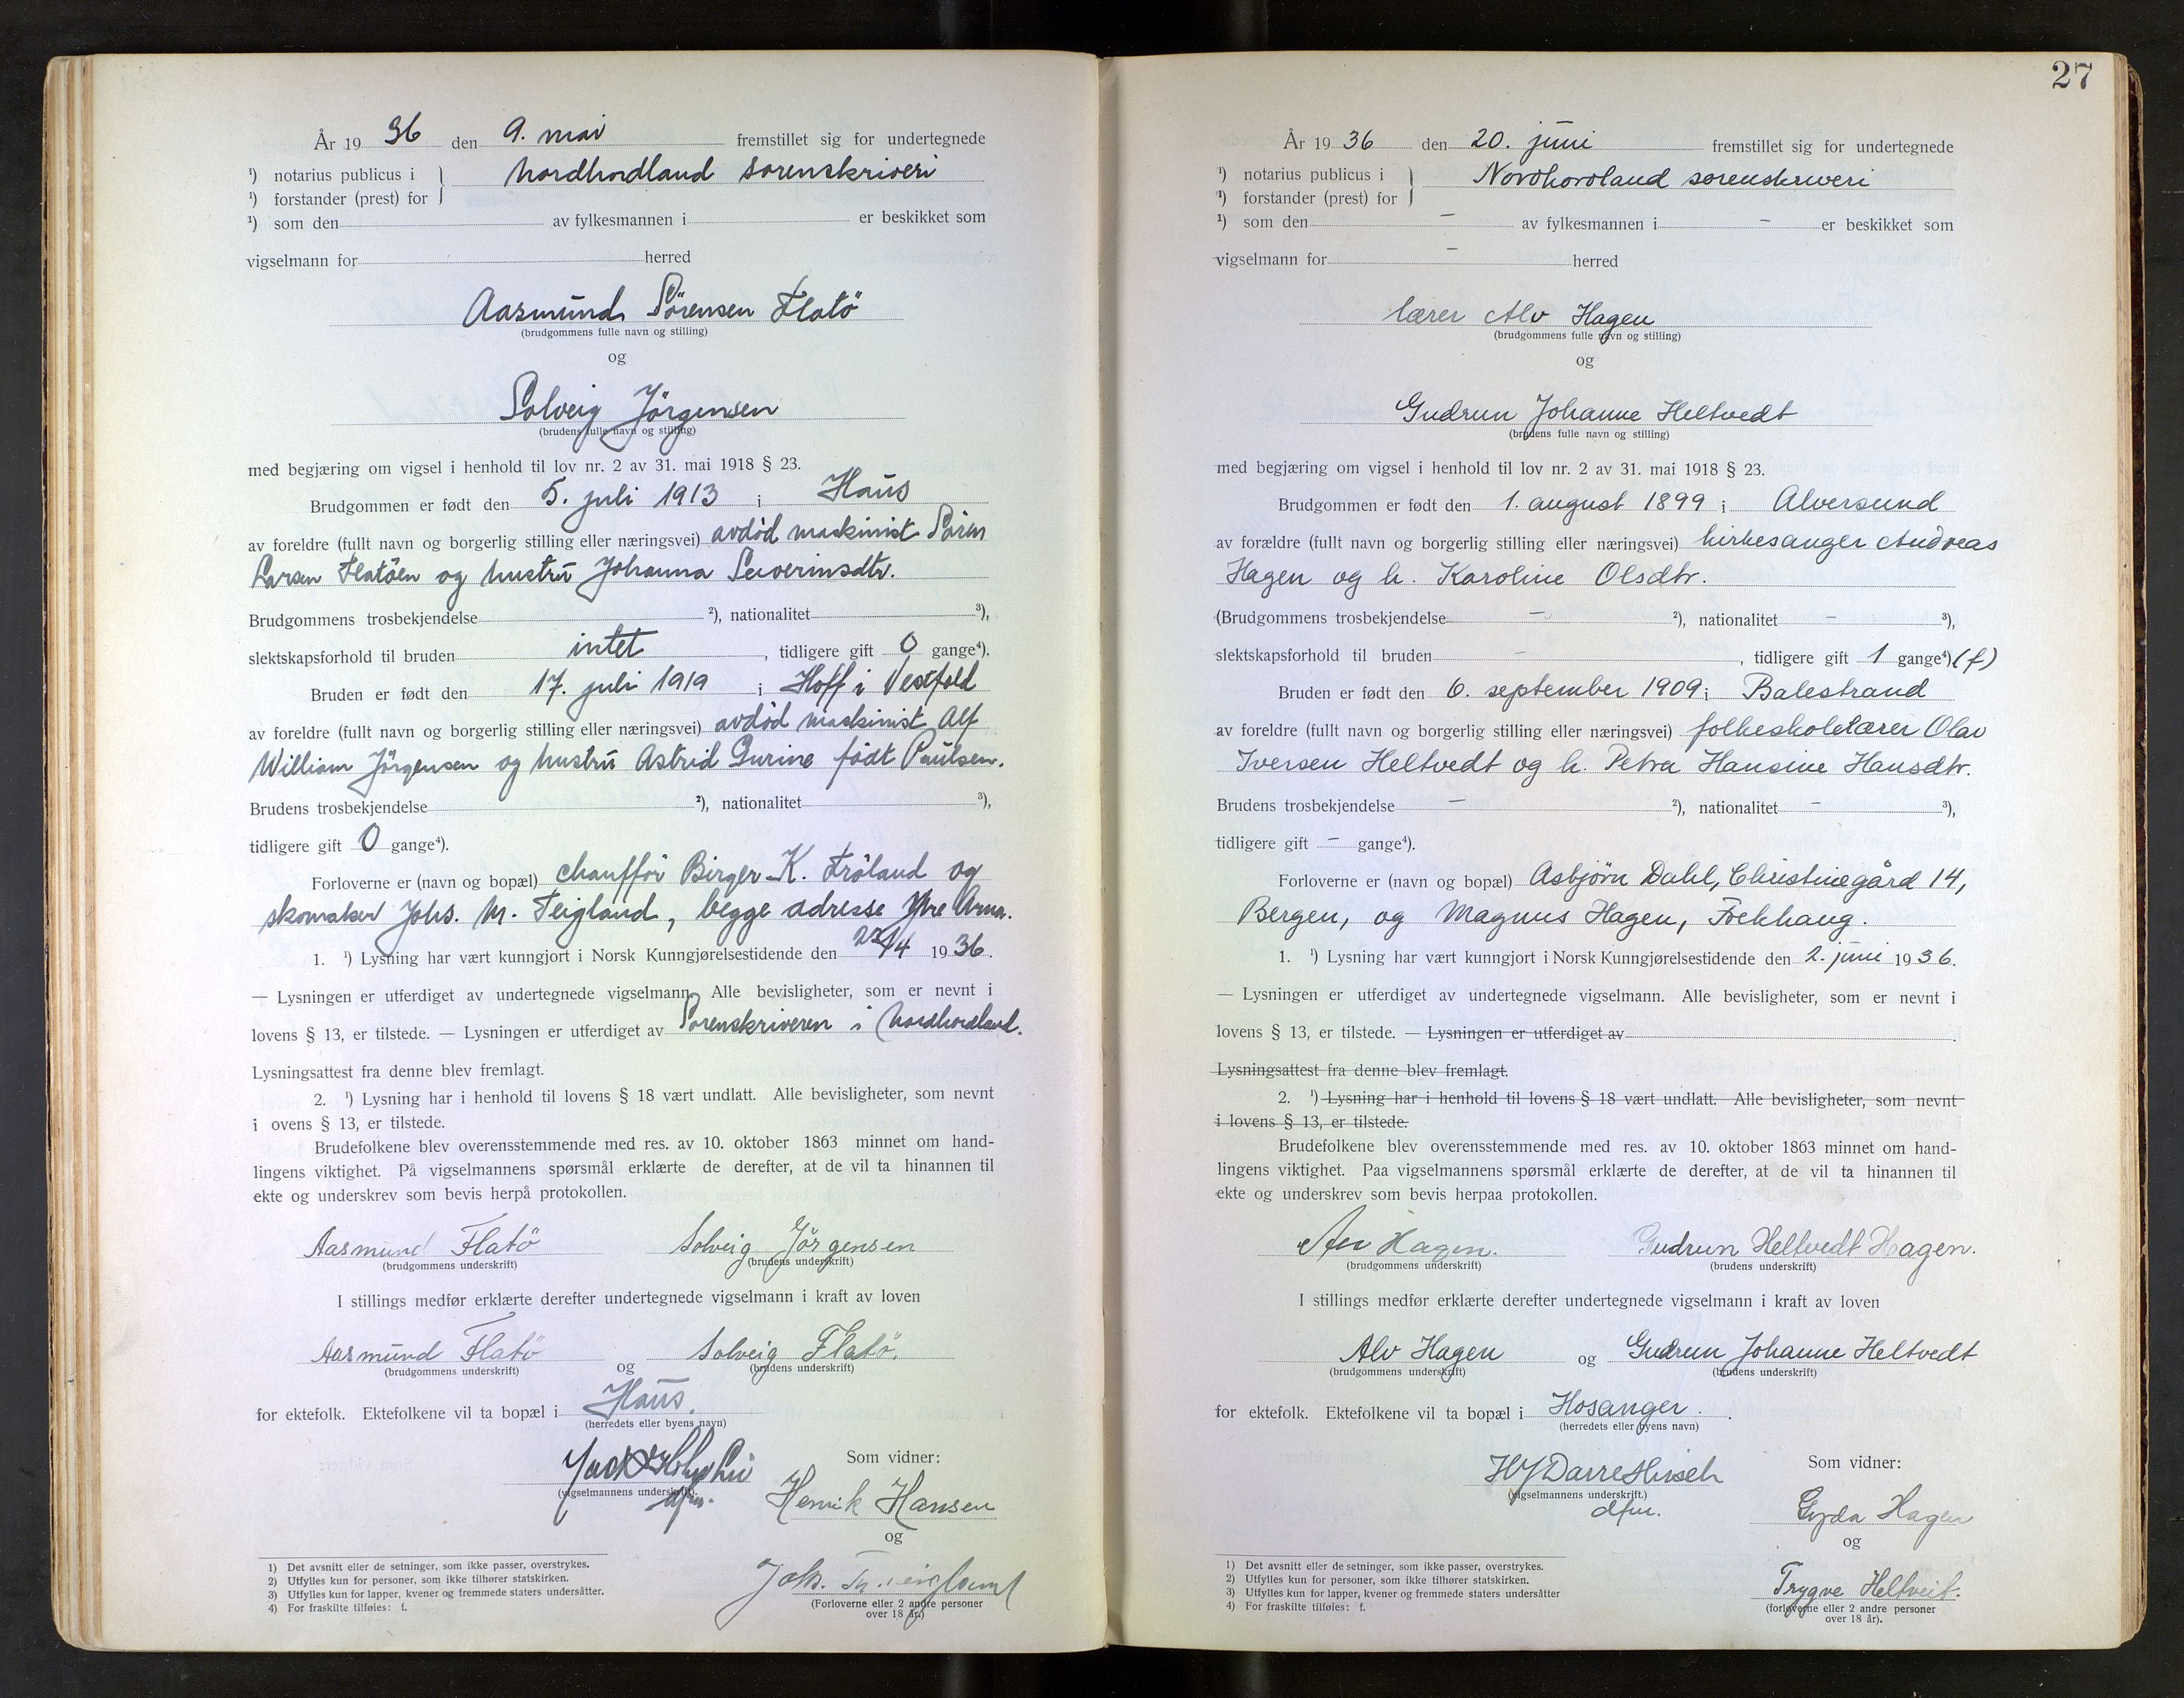 År 19 36 den 9. mai fremstillet sig for undertegnede
¹) notarius publicus i } Nordhordland sorenskriveri
¹) forstander (prest) for
¹) som den av fylkesmannen i er beskikket som
vigselmann for herred
Aasmund Sörensen Flatö
(brudgommens fulle navn og stilling)
og
Solveig Jörgensen
(brudens fulle navn og stilling)
med begjæring om vigsel i henhold til lov nr. 2 av 31. mai 1918 § 23.
Brudgommen er født den 5. juli 1913 i Haus
av foreldre (fullt navn og borgerlig stilling eller næringsvei) avdöd maskinist Sören
Larsen Flatöen og hustru Johanna Severinsdtr.
Brudgommens trosbekjendelse ²), nationalitet ³),
slektskapsforhold til bruden intet, tidligere gift 0 gange⁴).
Bruden er født den 17. juli 1919 i Hoff i Vestfold
av foreldre (fullt navn og borgerlig stilling eller næringsvei) avdöd maskinist Alf
William Jörgensen og hustru Astrid Gurine födt Paulsen.
Brudens trosbekjendelse ²), nationalitet ³),
tidligere gift 0 gange⁴).
Forloverne er (navn og bopæl) chaufför Birger K. Fröland og
skomaker Johs. M. Teigland, begge adresse Ytre Arna.
1. ¹) Lysning har vært kunngjort i Norsk Kunngjørelsestidende den /4 1936.
— Lysningen er utferdiget av undertegnede vigselmann. Alle bevisligheter, som er nevnt i
lovens § 13, er tilstede. — Lysningen er utferdiget av Sorenskriveren i Nordhordland.
Lysningsattest fra denne blev fremlagt.
2. ¹) Lysning har i henhold til lovens § 18 vært undlatt. Alle bevisligheter, som nevnt
i ovens § 13, er tilstede.
Brudefolkene blev overensstemmende med res. av 10. oktober 1863 minnet om hand-
lingens viktighet. På vigselmannens spørsmål erklærte de derefter, at de vil ta hinannen til
ekte og underskrev som bevis herpå protokollen.
Aasmund Flatö Solveig Jörgensen
(brudgommens underskrift) (brudens underskrift)
I stillings medfør erklærte derefter undertegnede vigselmann i kraft av loven
Aasmund Flatö og Solveig Flatö.
(brudgommens underskrift) (brudens underskrift)
for ektefolk. Ektefolkene vil ta bopæl i Haus.
(herredets eller byens navn)
Som vidner:
(vigselmannens underskrift).
Henrik Hansen
og
Johs. M. Teigland
(Forloverne eller 2 andre personer
over 18 år.)
1) Det avsnitt eller de setninger, som ikke passer, overstrykes.
2) Utfylles kun for personer, som ikke tilhører statskirken.
3) Utfylles kun for lapper, kvener og fremmede staters undersåtter.
4) For fraskilte tilføies: f.
27
År 19 36 den 20. juni fremstillet sig for undertegnede
¹) notarius publicus i } Nordhordland sorenskriveri
¹) forstander (prest) for
¹) som den – av fylkesmannen i – er beskikket som
vigselmann for – herred
lærer Alv Hagen
(brudgommens fulle navn og stilling)
og
Gudrun Johanne Heltvedt
(brudens fulle navn og stilling)
med begjæring om vigsel i henhold til lov nr. 2 av 31. mai 1918 § 23.
Brudgommen er født den 1. august 1899 i Alversund
av forældre (fullt navn og borgerlig stilling eller næringsvei) kirkesanger Andreas
Hagen og h. Karoline Olsdtr.
(Brudgommens trosbekjendelse – ²), nationalitet – ³),
slektskapsforhold til bruden –, tidligere gift 1 gange⁴) (f)
Bruden er født den 6. september 1909 i Balestrand
av foreldre (fullt navn og borgerlig stilling eller næringsvei) folkeskolelærer Olav
Iversen Heltvedt og h. Petra Hansine Hansdtr.
Brudens trosbekjendelse – ²), nationalitet – ³),
tidligere gift – gange⁴).
Forloverne er (navn og bopæl) Asbjörn Dahl, Christinegård 14,
Bergen, og Magnus Hagen,
1. ¹) Lysning har vært kunngjort i Norsk Kunngjørelsestidende den 2. juni 1936.
— Lysningen er utferdiget av undertegnede vigselmann. Alle bevisligheter, som er nevnt i
lovens § 13, er tilstede. — Lysningen er utferdiget av
Lysningsattest fra denne blev fremlagt.
2. ¹) Lysning har i henhold til lovens § 18 vært undlatt. Alle bevisligheter, som nevnt
i lovens § 13, er tilstede.
Brudefolkene blev overensstemmende med res. av 10. oktober 1863 minnet om hand-
lingens viktighet. Paa vigselmannens spørsmål erklærte de derefter, at de vil ta hinannen til
ekte og underskrev som bevis herpaa protokollen.
Alv Hagen. Gudrun Heltvedt Hagen.
(brudgommens underskrift) (brudens underskrift)
I stillings medfør erklærte derefter undertegnede vigselmann i kraft av loven
Alv Hagen og Gudrun Johanne Heltvedt
(brudgommens underskrift) (brudens underskrift)
for ektefolk. Ektefolkene vil ta bopæl i Hosanger.
(herredets eller byens navn)
Som vidner:
HJ Darre Hirsch
(vigselmannens underskrift.)
dfm.
Gyda Hagen
og
Trygve Heltveit.
(forloverne eller 2 andre personer
over 18 år).
1) Det avsnitt eller de setninger, som ikke passer, overstrykes.
2) Utfylles kun for personer, som ikke tilhører statskirken.
3) Utfylles kun for lapper, kvener og fremmede staters undersåtter
4) For fraskilte tilføies: f.